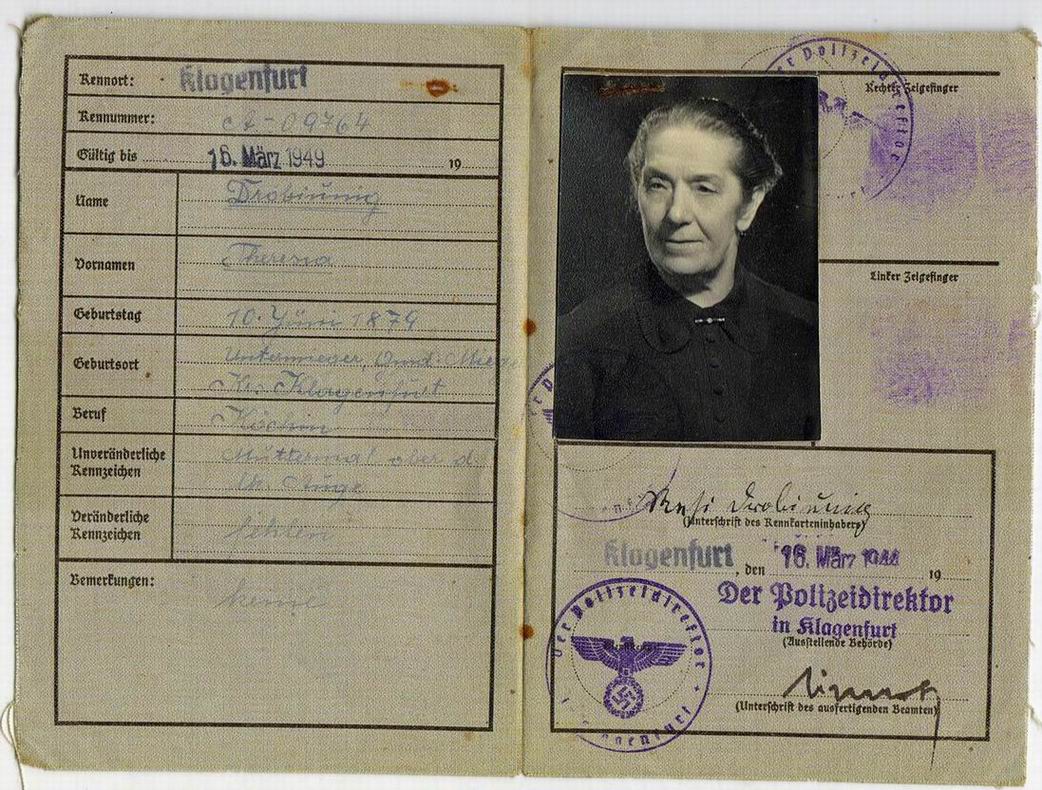 Kennort: Klagenfurt
Kennummer: A-09764
Gültig bis 16. März 1949 19
Name Drobiunig
Vornamen Theresia
Geburtstag 10. Juni 1879
Geburtsort Untermieger, Gmd. Mieger
Kr. Klagenfurt
Beruf Köchin
Unveränderliche Kennzeichen Muttermal ober d.
lk. Auge
Veränderliche Kennzeichen fehlen
Bemerkungen: keine
Der Polizeidirektor
Rechter Zeigefinger
Linker Zeigefinger
Resi Drobiunig
(Unterschrift des Kennkarteninhabers)
Klagenfurt, den 16. März 1944 19
Der Polizeidirektor
in Klagenfurt
(Ausstellende Behörde)
(Unterschrift des ausfertigenden Beamten)
Der Polizeidirektor
Klagenfurt